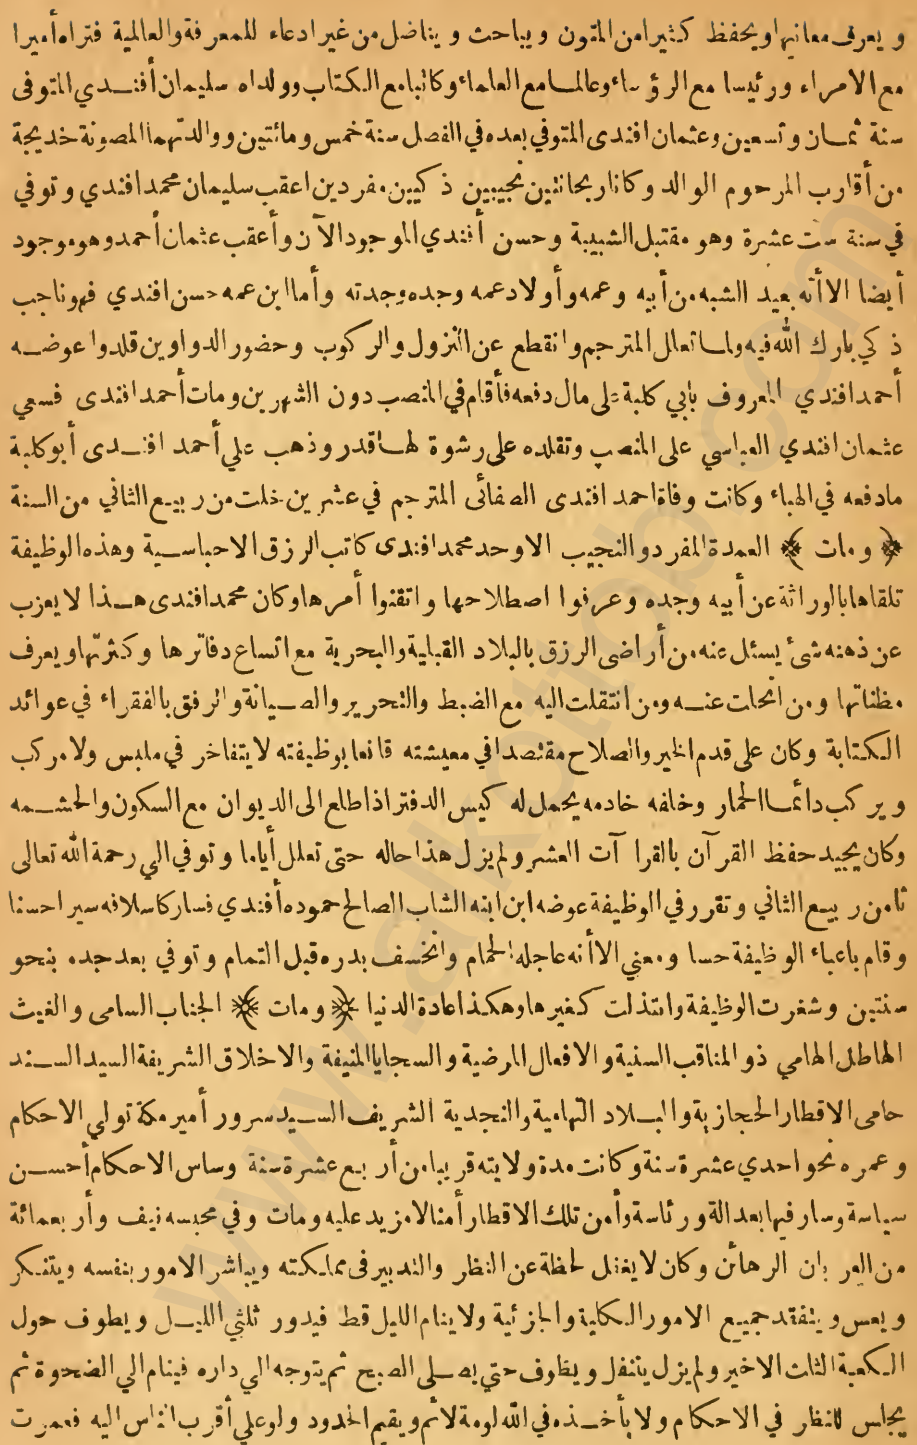 و يعرف معانيها ويحفظ كثيرا من المتون ويباحث و يناضل من غير ادعاء للمعرفة والعالمية فتراه أميرا
مع الامراء ورئيسا مع الرؤساء وعالما مع العلماء وكاتبا مع الكتاب وولداه سليمان أفندي المتوفى
سنة ثمان وتسعين وعثمان افندى المتوفي بعده في الفصل سنة خمس ومائتين ووالدتهما المصونة خديجة
من أقارب المرحوم الوالد وكانا ريحانتين نجيبين ذكيين مفردين اعقب سليمان محمد افندي و توفي
في سنة ست عشرة وهو مقتبل الشبيبة وحسن أفندي الموجود الآن وأعقب عثمان أحمد وهو موجود
أيضا الا أنه بعيد الشبه من أبيه وعمه وأولاد عمه وجده وجدته وأما ابن عمه حسن افندي فهو ناجب
ذكي بارك الله فيه ولما تعالل المترجم وانقطع عن النزول والركوب وحضور الدواوين قلدوا عوضه
أحمد افندي المعروف بأبي كلبة على مال دفعه فأقام في المنصب دون الشهرين ومات أحمد افندى فسعي
عثمان افندي العباسي على المنصب وتقلده على رشوة لها قدر وذهب علي أحمد افندى أبو كلبة
مادفعه في الهباء وكانت وفاة احمد افندى الصفائى المترجم في عشرين خلت من ربيع الثاني من السنة
﴿ ومات ﴾ العمدة المفرد والنجيب الاوحد محمد افندى كاتب الرزق الاحباسية وهذه الوظيفة
تلقاها بالوراثة عن أبيه وجده وعرفوا اصطلاحها واتقنوا أمرها وكان محمد افندى هذا لا يعزب
عن ذهنه شئ يسئل عنه من أراضى الرزق بالبلاد القبلية والبحرية مع اتساع دفاترها وكثرتها ويعرف
مظناتها ومن انحلت عنه ومن انتقلت اليه مع الضبط والتحرير والصيانة والرفق بالفقراء في عوائد
الكتابة وكان على قدم الخير والصلاح مقتصدا في معيشته قانعا بوظيفته لا يتفاخر في ملبس ولا مركب
و يركب دائما الحمار وخلفه خادمه يحمل له كيس الدفتر اذا طلع الى الديوان مع السكون والحشمه
وكان يجيد حفظ القرآن بالقراآت العشر ولم يزل هذا حاله حتى تعلل أياما وتوفي الي رحمة الله تعالى
ثامن ربيع الثاني وتقرر في الوظيفة عوضه ابن ابنه الشاب الصالح حموده أفندي فسار كاسلافه سيرا حسنا
وقام باعباء الوظيفة حسا ومعني الا أنه عاجله الحمام وانخسف بدره قبل التمام وتوفي بعد جده بنحو
سنتين وشغرت الوظيفة وابتذلت كغيرها وهكذا عادة الدنيا ﴿ ومات ﴾ الجناب السامى والغيث
الهاطل الهامي ذو المناقب السنية والافعال المرضية والسجايا المنيفة والاخلاق الشريفة السيد السند
حامى الاقطار الحجازية والبلاد التهامية والنجدية الشريف السيد سرور أمير مكة تولي الاحكام
وعمره نحو احدي عشرة سنة وكانت مدة ولايته قريبا من أربع عشرة سنة وساس الاحكام أحسن
سياسة وسار فيها بعدالة ورئاسة وأمن تلك الاقطار أمنا لامزيد عليه ومات وفي محبسه نيف وأربعمائة
من العربان الرهائن وكان لايغفل لحظة عن النظر والتدبير في مملكته ويباشر الامور بنفسه ويتنكر
ويعس ويتفقد جميع الامور الكلية والجزئية ولاينام الليل قط فيدور ثلثي الليل ويطوف حول
الكعبة الثلث الاخير ولم يزل يتنفل ويطوف حتي يصلى الصبح ثم يتوجه الي داره فينام الي الضحوة ثم
يجلس للنظر في الاحكام ولا يأخذه في الله لومة لائم ويقيم الحدود ولو علي أقرب الناس اليه فعمرت
www.alkottob.com